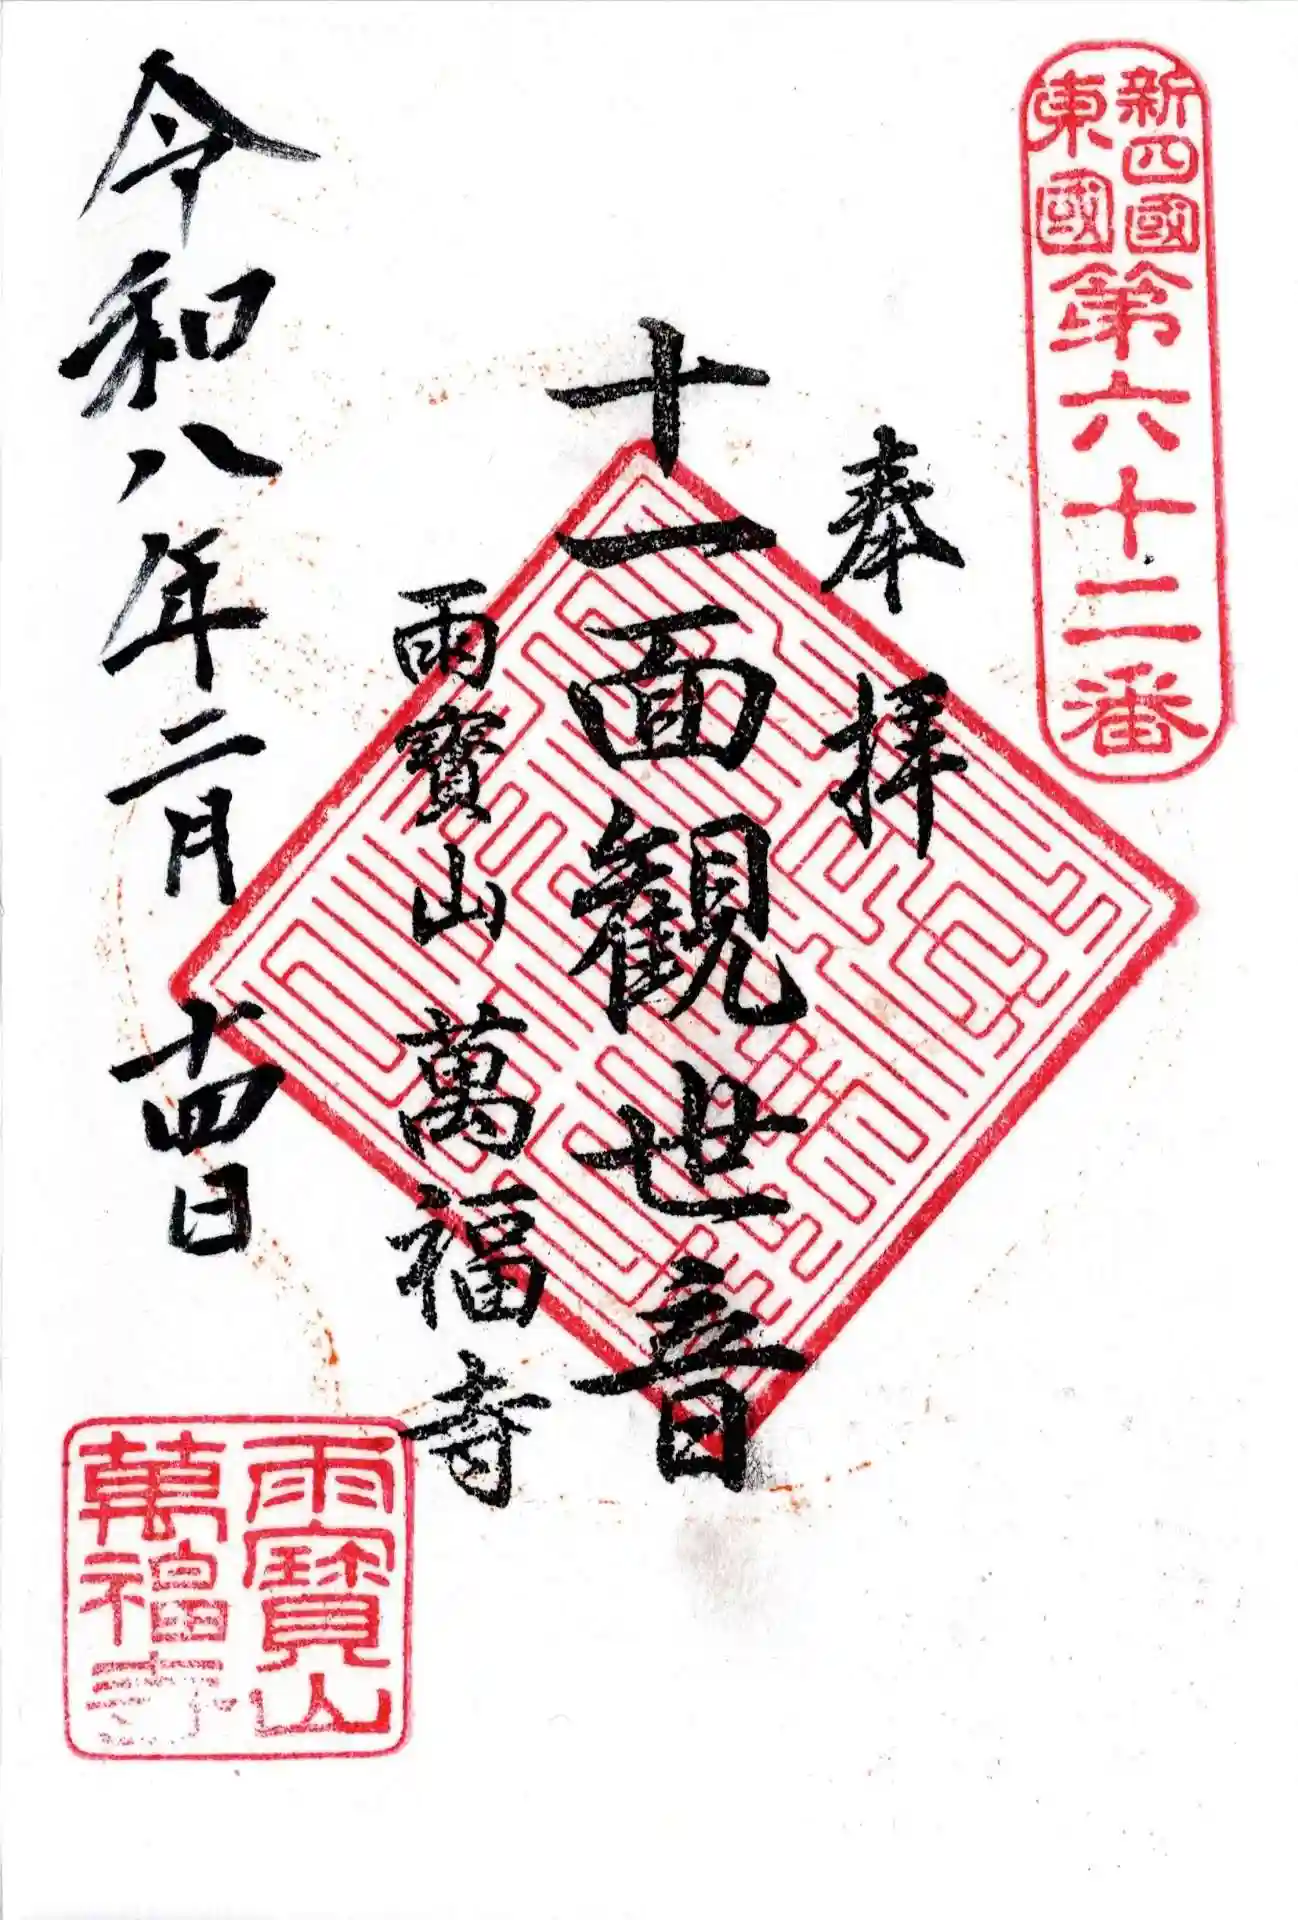 新四國
東國
第六十二番
奉拝
十一面観世音
雨寶山 萬福寺
令和八年二月十四日
雨寶山
萬福寺